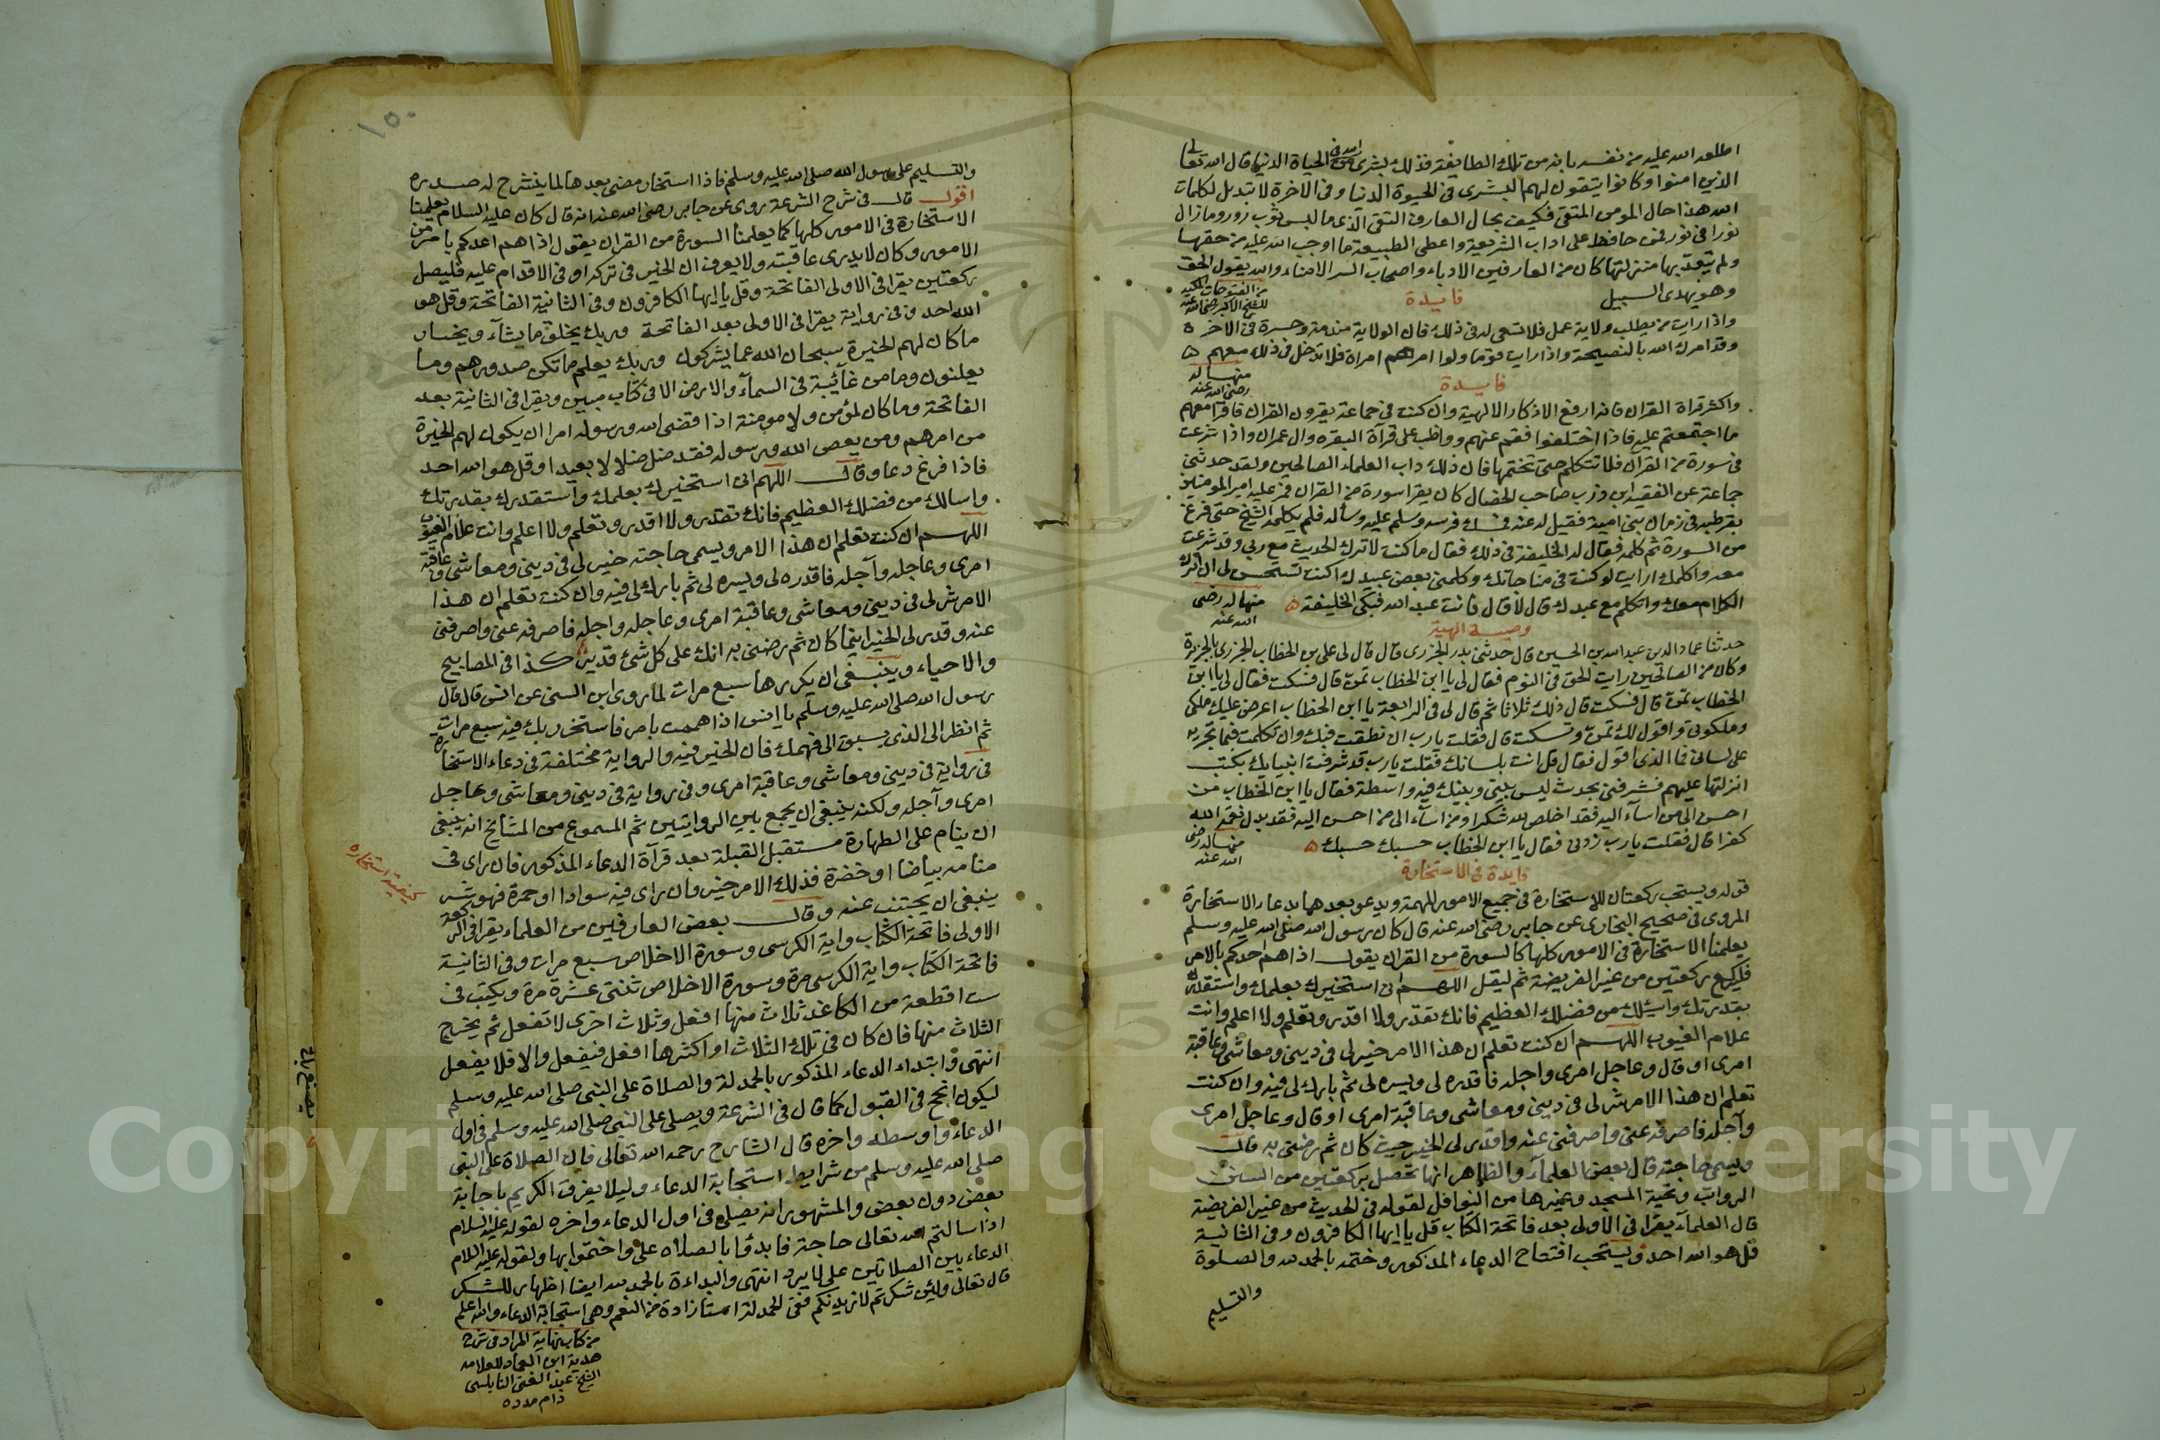 اطلعه الله عليه من نفسه بانه من تلك الطايفة فذلك بشرى من الله في الحياة الدنيا قال الله تعالى
الذين امنوا وكانوا يتقون لهم البشرى في الحيوة الدنيا وفي الاخرة لا تبديل لكلمات
الله هذا حال المومن المتقي فكيف بحال العارف النقي الذي ما لبس ثوب زور وما زال
نورا في نور فمن حافظ على اداب الشريعة واعطى الطبيعة ما اوجب الله عليه من حقها
ولم يتعد بها منزلتها كان من العارفين الادباء واصحاب السر الامناء والله يقول الحق
وهو يهدي السبيل
من الفتوحات المكية
للشيخ الاكبر رضي الله عنه
فايدة
واذا رايت من يطلب ولاية عمل فلا تسعى له في ذلك فان الولاية مندمة وحسرة في الاخرة
وقد امرك الله بالنصيحة واذا رايت قوما ولوا امرهم امراة فلا تدخل في ذلك معهم
منها له
رضي الله عنه
فايدة
واكثر قراة القران فانه ارفع الاذكار الالهية وان كنت في جماعة يقرون القران فاقرا معهم
ما اجتمعتم عليه فاذا اختلفوا فقم عنهم وواظب على قرآة البقره وال عمران واذا شرعت
في سورة من القران فلا تتكلم حتى تختمها فان ذلك داب العلماء الصالحين ولقد حدثني
جماعة عن الفقيه ابن زرب صاحب الخصال كان يقرا سورة من القران فمر عليه امير المومنين
بقرطبه في زمان بني امية فقيل له عنه فمسك فرسه وسلم عليه وساله فلم يكلمه الشيخ حتى فرغ
من السورة ثم كلمه فقال له الخليفة في ذلك فقال ما كنت لاترك الحديث مع ربي وقد شرعت
معه واكلمك ارايت لو كنت في مناجاتك وكلمني بعض عبيدك اكنت تستحسن لي ان اترك
الكلام معك واتكلم مع عبدك قال لا قال فانت عبد الله فبكى الخليفة
منها له رضي
الله عنه
وصية الهية
حدثنا عماد الدين عبد الله بن الحسين قال حدثني بدر الجزري قال قال لي علي بن الخطاب الجزري بالجزيرة
وكان من الصالحين رايت الحق في النوم فقال لي يا ابن الخطاب تمن قال فسكت فقال لي يا ابن
الخطاب تمن قال فسكت قال ذلك ثلاثا ثم قال لي في الرابعة يا ابن الخطاب اعرض عليك ملكي
وملكوتي واقول لك تمن وتسكت قال فقلت يا رب ان نطقت فبك وان تكلمت فبما تجريه
على لساني فما الذي اقول فقال قل انت بلسانك فقلت يا رب قد شرفت انبيايك بكتب
انزلتها عليهم فشرفني بحديث ليس بيني وبينك فيه واسطة فقال يا ابن الخطاب من
احسن الى من آسآء اليه فقد اخلص لله شكرا ومن اسآء الى من احسن اليه فقد بدل نعمة الله
كفرا قال فقلت يا رب زدني فقال يا ابن الخطاب حسبك حسبك
منها له رضي
الله عنه
فايدة في الاستخارة
قوله ويستحب ركعتان للاستخارة في جميع الامور المهمة ويدعو بعدهما بدعاء الاستخارة
المروي في صحيح البخاري عن جابر رضي الله عنه قال كان رسول الله صلى الله عليه وسلم
يعلمنا الاستخارة في الامور كلها كالسورة من القران يقول اذا هم احدكم بالامر
فليركع ركعتين من غير الفريضة ثم ليقل اللهم اني استخيرك بعلمك واستقدرك
بقدرتك واسئلك من فضلك العظيم فانك تقدر ولا اقدر وتعلم ولا اعلم وانت
علام الغيوب اللهم ان كنت تعلم ان هذا الامر خير لي في ديني ومعاشي وعاقبة
امري او قال وعاجل امري واجله فاقدره لي ويسره لي ثم بارك لي فيه وان كنت
تعلم ان هذا الامر شر لي في ديني ومعاشي وعاقبة امري او قال وعاجل امري
وآجله فاصرفه عني واصرفني عنه واقدر لي الخير حيث كان ثم رضني به قال
ويسمي حاجته قال بعض العلمآء والظاهر انها تحصل بركعتين من السنن
الرواتب وتحية المسجد وغيرها من النوافل لقوله في الحديث من غير الفريضة
قال العلمآء يقرا في الاولى بعد فاتحة الكتاب قل يا ايها الكافرون وفي الثانية
قل هو الله احد ويستحب افتتاح الدعاء المذكور وختمه بالحمد لله والصلوة
والتسليم
١٥٠
والتسليم على رسول الله صلى الله عليه وسلم فاذا استخار مضى بعدها لما ينشرح له صدره
اقول قال في شرح الشرعة روي عن جابر رضي الله عنه انه قال كان عليه السلام يعلمنا
الاستخارة في الامور كلها كما يعلمنا السورة من القران يقول اذا هم احدكم بامر من
الامور وكان لا يدري عاقبته ولا يعرف ان الخير في تركه او في الاقدام عليه فليصل
ركعتين يقرا في الاولى الفاتحة وقل يا ايها الكافرون وفي الثانية الفاتحة وقل هو
الله احد وفي رواية يقرا في الاولى بعد الفاتحة وربك يخلق ما يشآء ويختار
ما كان لهم الخيرة سبحان الله عما يشركون وربك يعلم ما تكن صدورهم وما
يعلنون وما من غآئبة في السمآء والارض الا في كتاب مبين ويقرا في الثانية بعد
الفاتحة وما كان لمؤمن ولا مومنة اذا قضى الله ورسوله امرا ان يكون لهم الخيرة
من امرهم ومن يعص الله ورسوله فقد ضل ضلالا بعيدا وقل هو الله احد
فاذا فرغ دعا وقال اللهم اني استخيرك بعلمك واستقدرك بقدرتك
واسالك من فضلك العظيم فانك تقدر ولا اقدر وتعلم ولا اعلم وانت علام الغيوب
اللهم ان كنت تعلم ان هذا الامر ويسمي حاجته خير لي في ديني ومعاشي وعاقبة
امري وعاجله وآجله فاقدره لي ويسره لي ثم بارك لي فيه وان كنت تعلم ان هذا
الامر شر لي في ديني ومعاشي وعاقبة امري وعاجله واجله فاصرفه عني واصرفني
عنه وقدر لي الخير اينما كان ثم رضني به انك على كل شئ قدير كذا في المصابيح
والاحياء وينبغي ان يكررها سبع مرات لما روى ابن السني عن انس قال قال
رسول الله صلى الله عليه وسلم يا انس اذا هممت بامر فاستخر ربك فيه سبع مرات
ثم انظر الى الذي يسبق الى فهمك فان الخير فيه والرواية مختلفة في دعاء الاستخارة
في رواية في ديني ومعاشي وعاقبة امري وفي رواية في ديني ومعاشي وعاجل
امري وآجله ولكنه ينبغي ان يجمع بين الروايتين ثم المسموع من المشائخ انه ينبغي
ان ينام على الطهارة مستقبل القبلة بعد قرآة الدعاء المذكور فان راى في
منامه بياضا او خضرة فذلك الامر خير وان راى فيه سوادا او حمرة فهو شر
ينبغي ان يجتنب عنه وقال بعض العارفين من العلماء يقرا في الركعة
الاولى فاتحة الكتاب واية الكرسي وسورة الاخلاص سبع مرات وفي الثانية
فاتحة الكتاب واية الكرسي مرة وسورة الاخلاص ثنتي عشرة مرة ويكتب في
ست اقطعة من الكاغد ثلاث منها افعل وثلاث اخرى لا تفعل ثم يخرج
الثلاث منها فان كان في تلك الثلاث او اكثرها افعل فيفعل والا فلا يفعل
انتهى وابتداء الدعاء المذكور بالحمدلة والصلاة على النبي صلى الله عليه وسلم
ليكون انجح في القبول كما قال في الشرعة ويصلي على النبي صلى الله عليه وسلم في اول
الدعاء واوسطه واخره قال الشارح رحمه الله تعالى فان الصلاة على النبي
صلى الله عليه وسلم من شرايط استجابة الدعاء وليلا يفرق الكريم باجابة
بعض دون بعض والمشهور انه يصلي في اول الدعاء واخره لقوله عليه السلام
اذا سالتم الله تعالى حاجة فابدؤا بالصلاة علي واختموا بها ولقوله عليه السلام
الدعاء بين الصلاتين علي لا يرد انتهى والبداءة بالحمد لله ايضا اظهار للشكر
قال تعالى ولئن شكرتم لازيدنكم ففي الحمدلة استزادة من النعم وهي استجابة الدعاء والله اعلم
من كتاب نهاية المراد في شرح
هدية ابن العماد للعلامه
الشيخ عبد الغني النابلسي
دام مدده
كيفية استخاره
Copyright © King Saud University